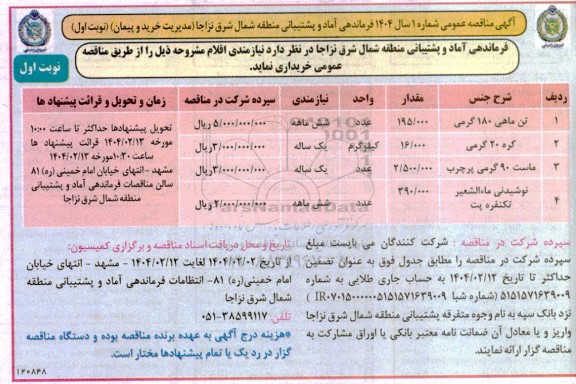 آگهی مناقصه عمومی شماره ۱ سال ۱۴۰۴ فرماندهی آماد و پشتیبانی منطقه شمال شرق نزاجا (مدیریت خرید و پیمان) (نوبت اول)
فرماندهی آماد و پشتیبانی منطقه شمال شرق نزاجا در نظر دارد نیازمندی اقلام مشروحه ذیل را از طریق مناقصه
عمومی خریداری نماید.
نوبت اول
ردیف شرح جنس مقدار واحد نیازمندی سپرده شرکت در مناقصه زمان و تحویل و قرائت پیشنهاد ها
۱ تن ماهی ۱۸۰ گرمی ۱۹۵/۰۰۰ عدد شش ماهه ۵/۰۰۰/۰۰۰/۰۰۰ ریال
۲ کره ۲۰ گرمی ۱۶/۰۰۰ کیلوگرم یک ساله ۳/۰۰۰/۰۰۰/۰۰۰ ریال
۳ ماست ۹۰ گرمی پرچرب ۲/۵۰۰/۰۰۰ عدد یک ساله ۳/۰۰۰/۰۰۰/۰۰۰ ریال
۴ نوشیدنی ماءالشعیر تکنفره پت ۳۹۰/۰۰۰ عدد شش ماهه ۲/۰۰۰/۰۰۰/۰۰۰ ریال
تحویل پیشنهادها حداکثر تا ساعت ۱۰:۰۰
مورخه ۱۴۰۴/۰۲/۱۳ قرائت پیشنهاد ها
ساعت ۱۰:۳۰ مورخه ۱۴۰۴/۰۲/۱۳
مشهد -انتهای خیابان امام خمینی (ره) ۸۱
سالن مناقصات فرماندهی آماد و پشتیبانی
منطقه شمال شرق نزاجا
سپرده شرکت در مناقصه : شرکت کنندگان می بایست مبلغ
سپرده شرکت در مناقصه را مطابق جدول فوق به عنوان تضمین
حداکثر تا تاریخ ۱۴۰۴/۰۲/۱۲ به حساب جاری طلایی به شماره
۵۱۵۱۵۷۱۶۳۹۰۰۹ (شماره شبا IR۰۷۰۱۵۰۰۰۰۰۰۵۱۵۱۵۷۱۶۳۹۰۰۹ )
نزد بانک سپه به نام وجوه متفرقه پشتیبانی منطقه شمال شرق نزاجا
واریز و یا معادل آن ضمانت نامه معتبر بانکی یا اوراق مشارکت به
مناقصه گزار ارائه نمایند.
تاریخ و محل دریافت اسناد مناقصه و برگزاری کمیسیون:
از تاریخ ۱۴۰۴/۰۲/۰۲ لغایت ۱۴۰۴/۰۲/۱۲ - مشهد - انتهای خیابان
امام خمینی(ره) ۸۱- انتظامات فرماندهی آماد و پشتیبانی منطقه
شمال شرق نزاجا
تلفن: ۳۸۵۹۹۱۱۷-۰۵۱
*هزینه درج آگهی به عهده برنده مناقصه بوده و دستگاه مناقصه
گزار در رد یک یا تمام پیشنهادها مختار است.
۱۲۰۸۴۸